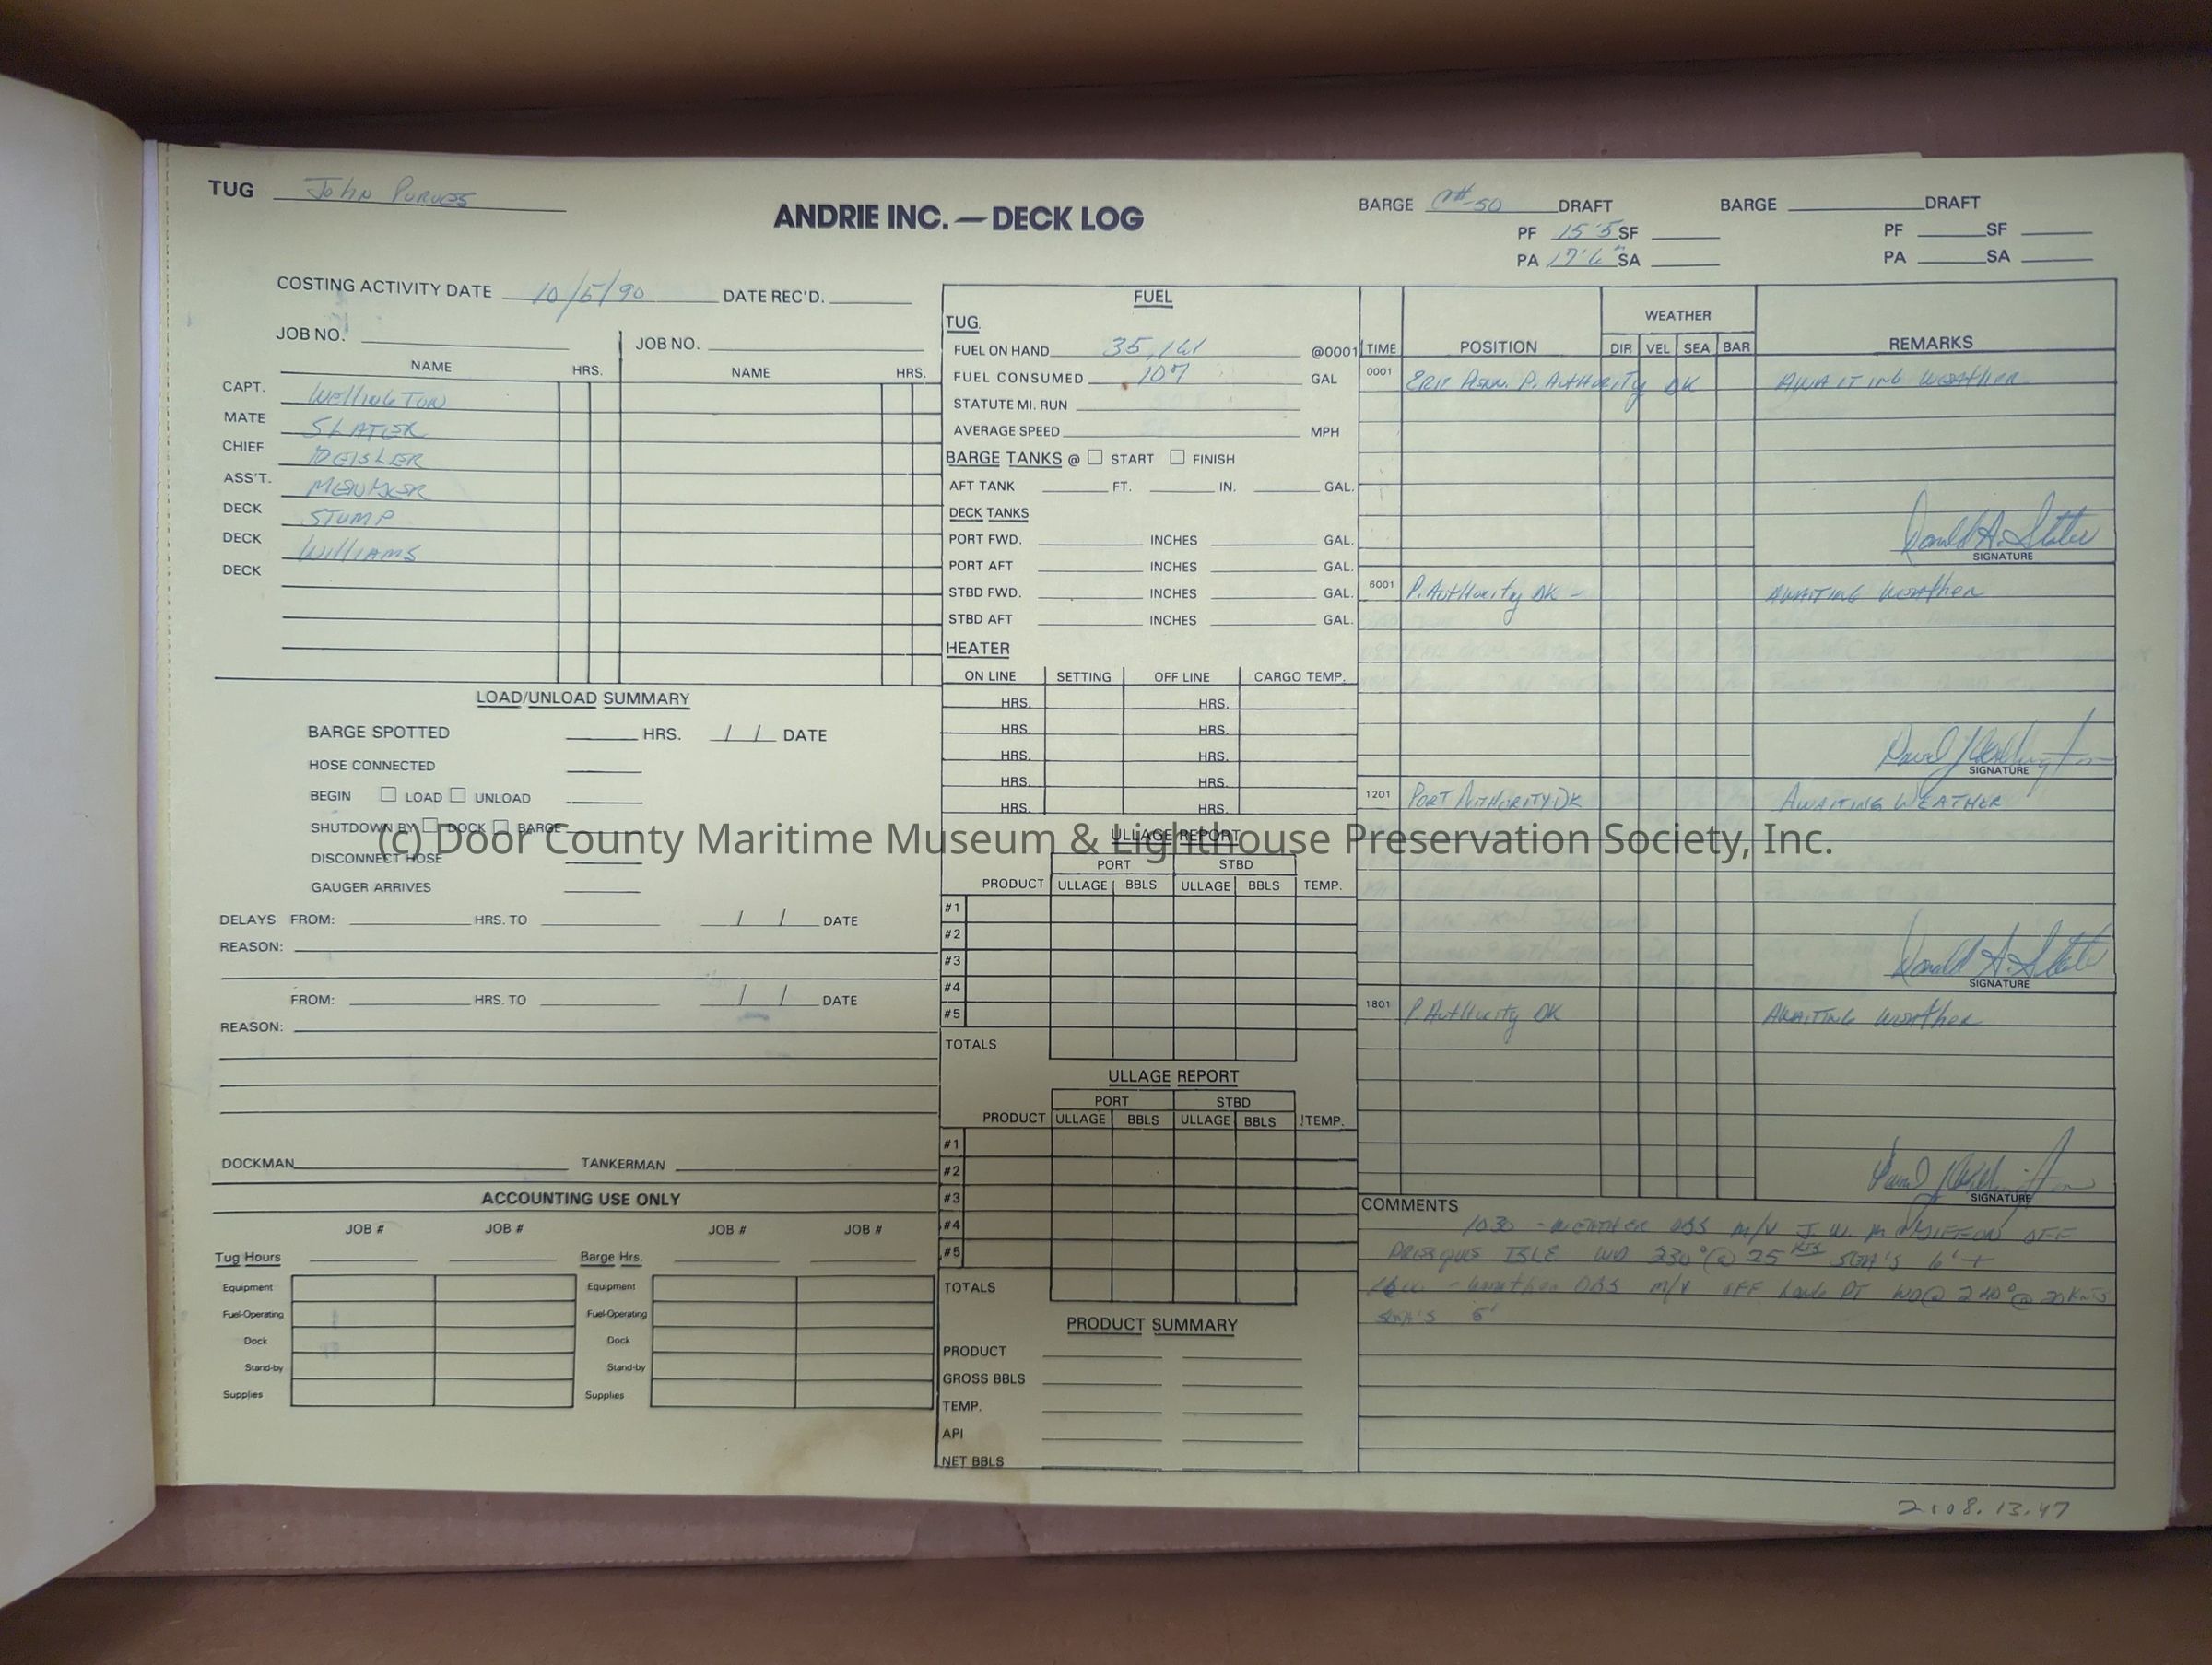 TUG John Purves
ANDRIE INC. — DECK LOG
BARGE -50 DRAFT
PF 15'5 SF
PA 17'6" SA
BARGE DRAFT
PF SF
PA SA
COSTING ACTIVITY DATE 10/5/90 DATE REC'D.
JOB NO. JOB NO.
NAME HRS. NAME HRS.
CAPT. Wellington
MATE SLATER
CHIEF DEISLER
ASS'T.
DECK STUMP
DECK Williams
DECK
LOAD/UNLOAD SUMMARY
BARGE SPOTTED HRS. / / DATE
HOSE CONNECTED
BEGIN LOAD UNLOAD
SHUTDOWN BY DOCK BARGE
DISCONNECT HOSE
GAUGER ARRIVES
DELAYS FROM: HRS. TO / / DATE
REASON:
FROM: HRS. TO / / DATE
REASON:
DOCKMAN TANKERMAN
ACCOUNTING USE ONLY
JOB # JOB # JOB # JOB #
Tug Hours Barge Hrs.
Equipment Equipment
Fuel-Operating Fuel-Operating
Dock Dock
Stand-by Stand-by
Supplies Supplies
FUEL
TUG
FUEL ON HAND 35,161 @0001
FUEL CONSUMED 107 GAL
STATUTE MI. RUN
AVERAGE SPEED MPH
BARGE TANKS @ START FINISH
AFT TANK FT. IN. GAL.
DECK TANKS
PORT FWD. INCHES GAL.
PORT AFT INCHES GAL.
STBD FWD. INCHES GAL.
STBD AFT INCHES GAL.
HEATER
ON LINE SETTING OFF LINE CARGO TEMP.
HRS. HRS.
HRS. HRS.
HRS. HRS.
HRS. HRS.
HRS. HRS.
ULLAGE REPORT
PORT STBD
PRODUCT ULLAGE BBLS ULLAGE BBLS TEMP.
#1
#2
#3
#4
#5
TOTALS
ULLAGE REPORT
PORT STBD
PRODUCT ULLAGE BBLS ULLAGE BBLS TEMP.
#1
#2
#3
#4
#5
TOTALS
PRODUCT SUMMARY
PRODUCT
GROSS BBLS
TEMP.
API
NET BBLS
WEATHER
TIME POSITION DIR VEL SEA BAR REMARKS
0001 Erie Penn. P. Authority DK AWAITING Weather
Donald A. Slater
SIGNATURE
6001 P. Authority DK - AWAITING Weather
David J Wellington
SIGNATURE
1201 PORT AUTHORITY DK AWAITING WEATHER
Donald A. Slater
SIGNATURE
1801 P. Authority DK AWAITING Weather
David J Wellington
SIGNATURE
COMMENTS
1030 - WEATHER OBS M/V J.W. OFF
PRESQUE ISLE WD 230° @ 25 KTS SEA'S 6'+
- Weather OBS M/V OFF Long PT WD@ 240° @ 20 Knts
SEA'S 5'
2108.13.47
(c) Door County Maritime Museum & Lighthouse Preservation Society, Inc.